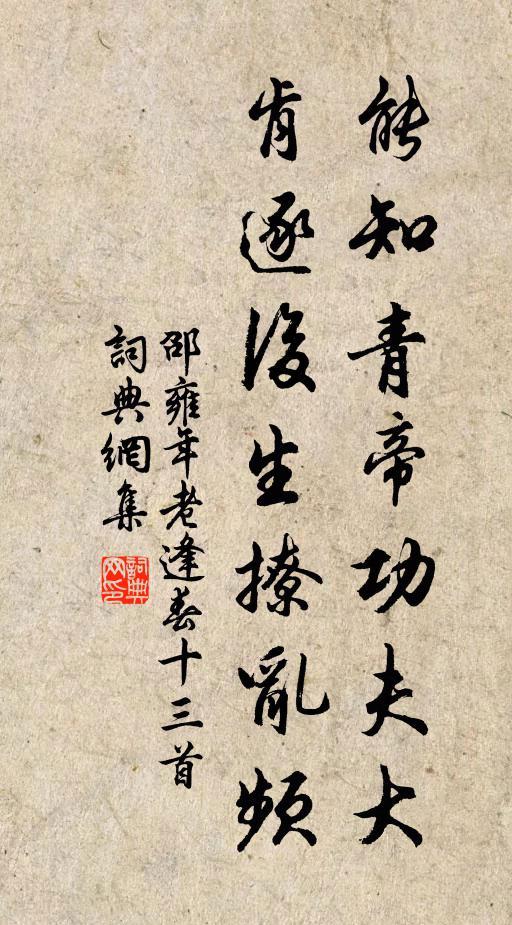 能知青帝功夫大
肯逐後生撩亂頻
邵雍年老逢春十三首
詞典網集
詞典網印